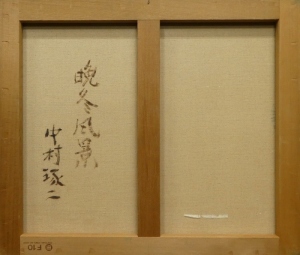 晩冬風景
中村琢二
F10